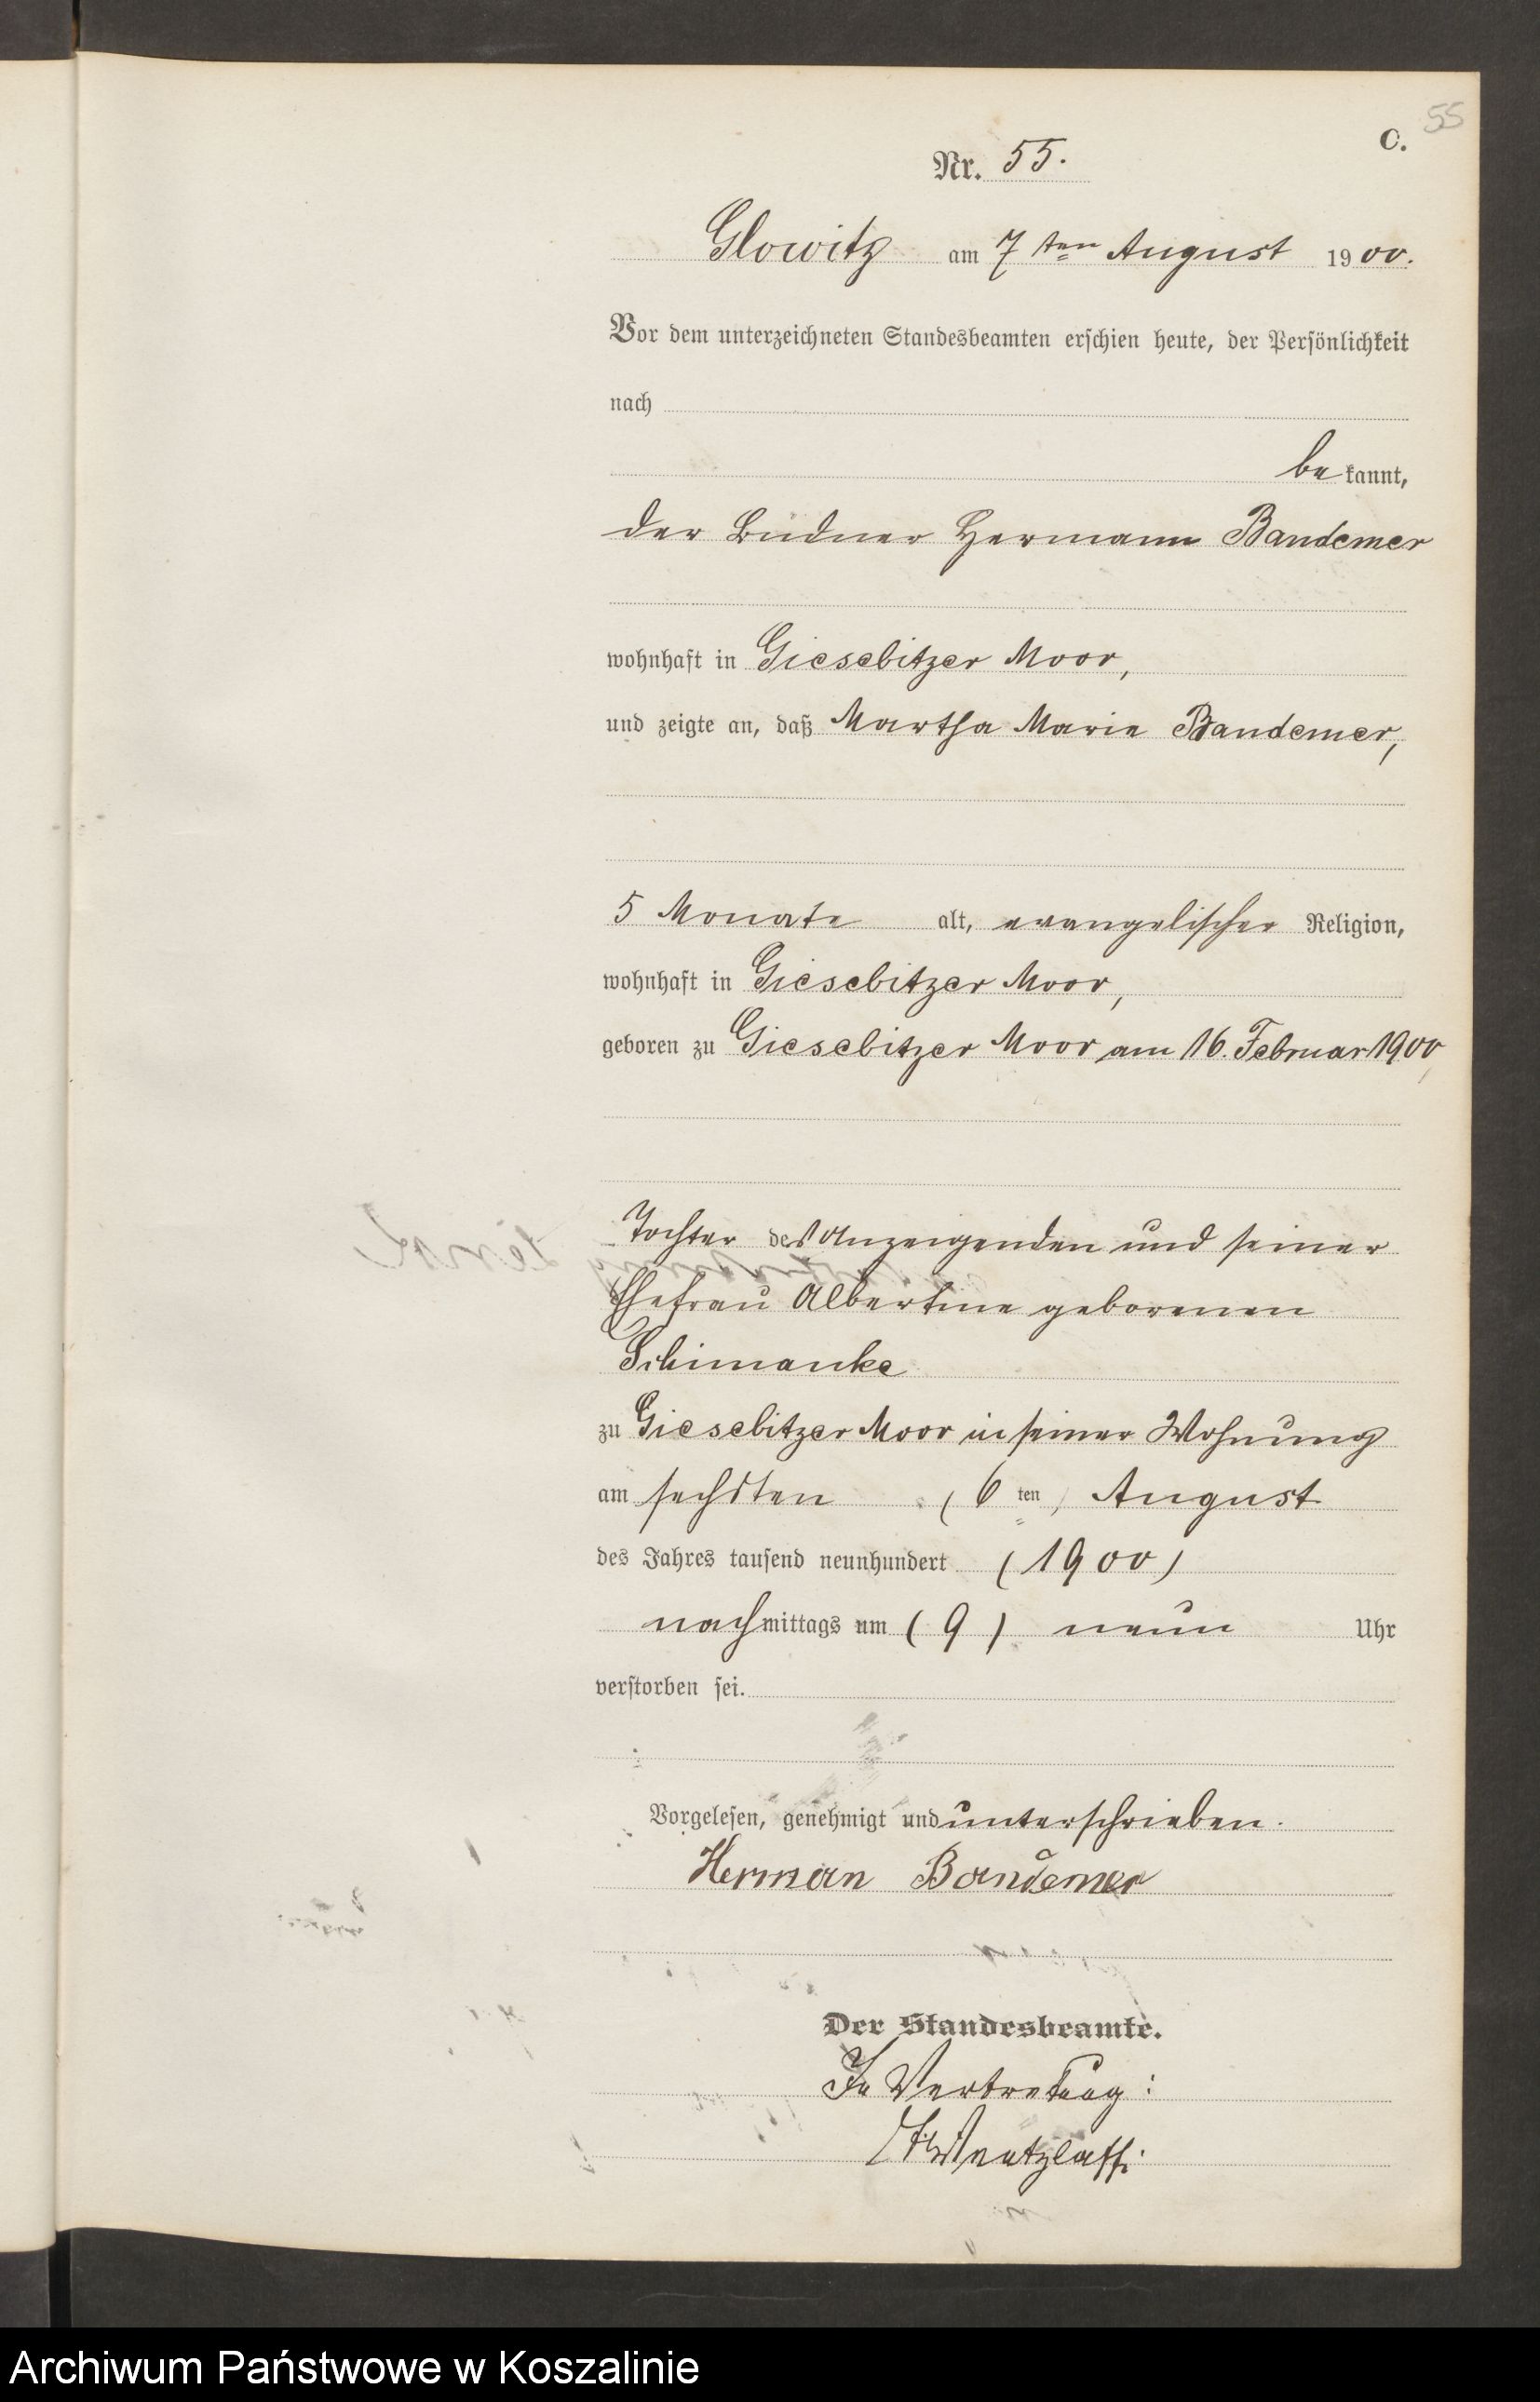 55
C.
Nr. 55.
Glowitz am 7 ten August 1900.
Vor dem unterzeichneten Standesbeamten erschien heute, der Persönlichkeit
nach
be kannt,
der Büdner Hermann Bandemer
wohnhaft in Giesebitzer Moor,
und zeigte an, daß Martha Marie Bandemer,
5 Monate alt, evangelischer Religion,
wohnhaft in Giesebitzer Moor,
geboren zu Giesebitzer Moor am 16. Februar 1900,
Tochter des Anzeigenden und seiner
Ehefrau Albertine geborenen
Schimanke
zu Giesebitzer Moor in seiner Wohnung
am sechsten (6 ten) August
des Jahres tausend neunhundert (1900)
nachmittags um (9) neun Uhr
verstorben sei.
Vorgelesen, genehmigt und unterschrieben.
Herman Bandemer
Der Standesbeamte.
In Vertretung:
Wentzlaff.
Archiwum Państwowe w Koszalinie